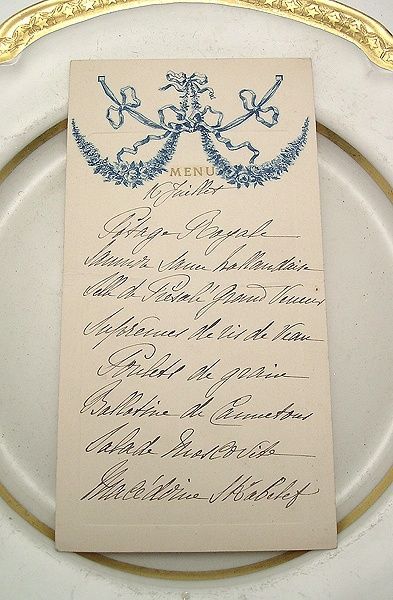 MENU
Juillet
Potage Royale
Saumon Sauce hollandaise
Selle de Présalé Grand Veneur
Suprêmes de ris de Veau
Poulets de grain
Ballotine de Cannetons
Salade Moscovite
Macédoine